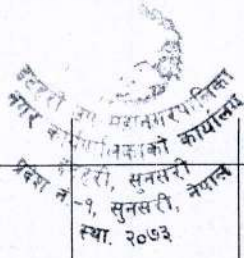 इटहरी उप महानगरपालिका
नगर कार्यपालिकाको कार्यालय
इटहरी, सुनसरी
प्रदेश नं. -१, सुनसरी, नेपाल
स्था. २०७३